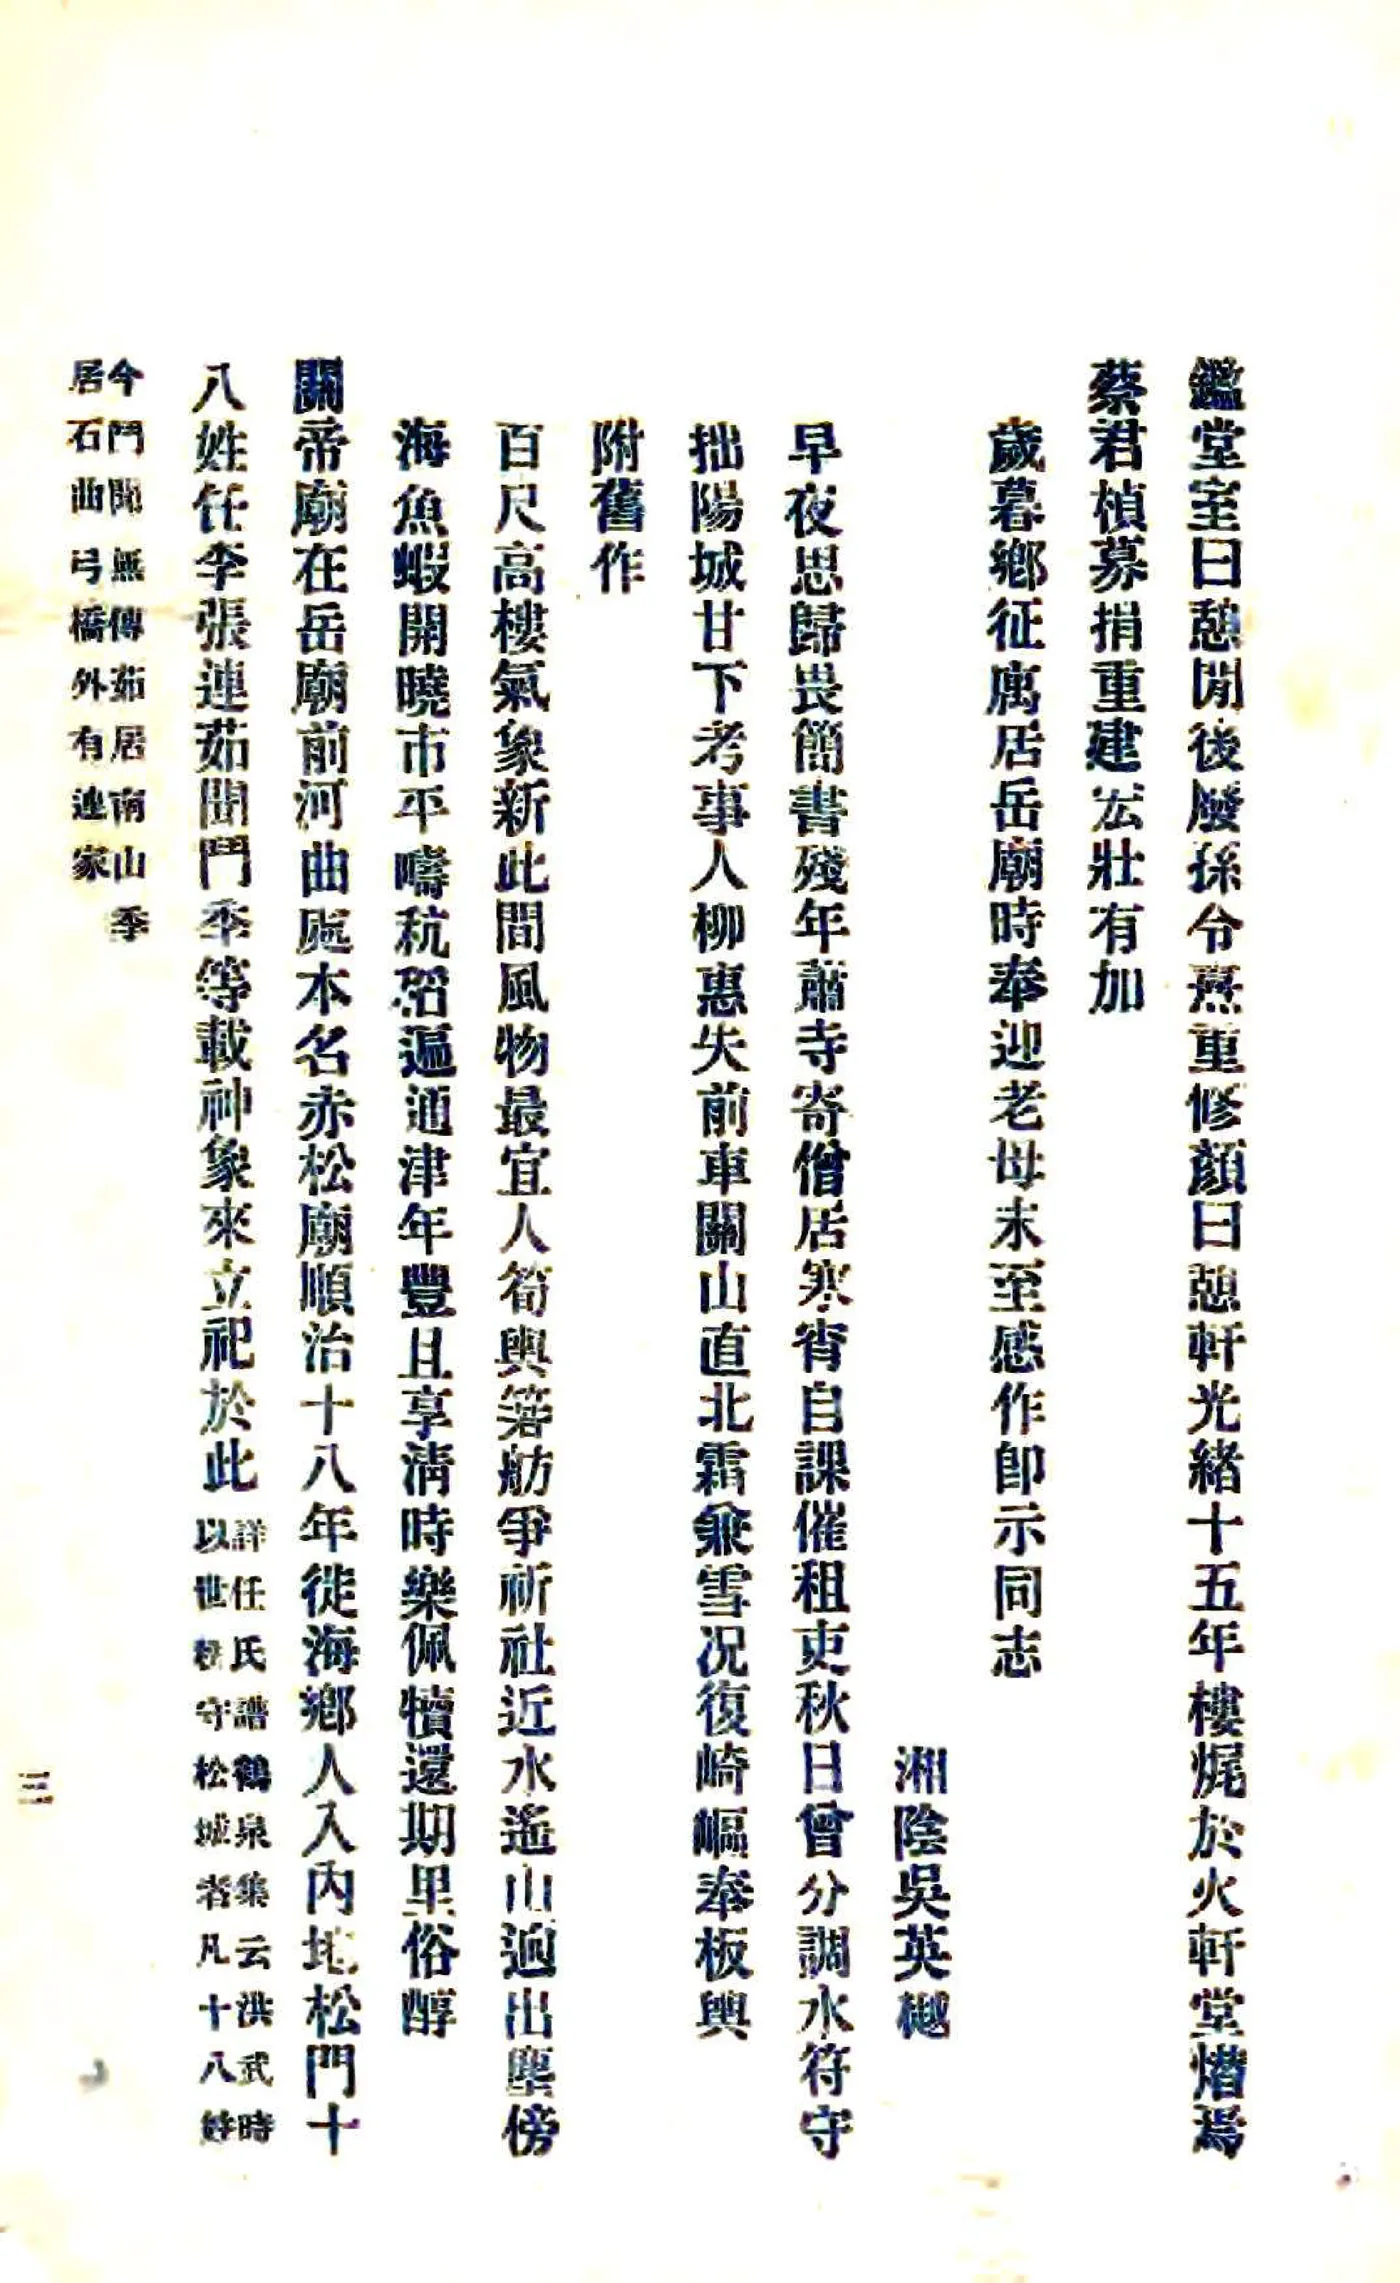 鑑堂室曰憩閒後廢孫令熹重修顏曰憩軒光緒十五年樓焜於火軒堂熸焉
蔡君楨募捐重建宏壯有加
歲暮鄉征寓居岳廟時奉迎老母未至感作卽示同志
湘陰吳英樾
早夜思歸畏簡書殘年蕭寺寄僧居寒宵自課催租吏秋日曾分調水符守
拙陽城甘下考事人柳惠失前車關山直北霜兼雪况復崎嶇奉板輿
附舊作
百尺高樓氣象新此間風物最宜人筍輿箬舫爭祈社近水遙山迥出塵傍
海魚蝦開曉市平疇秔稻遍通津年豐且享淸時樂佩犢還期里俗醇
關帝廟在岳廟前河曲處本名赤松廟順治十八年徙海鄉人入內地松門十
八姓任李張連茹閭鬥季等載神象來立祀於此
詳任氏譜鶴泉集云洪武時
以世 守松城者凡十八姓
今鬥閭無傳茹居南山季
居石曲弓橋外有連家
三